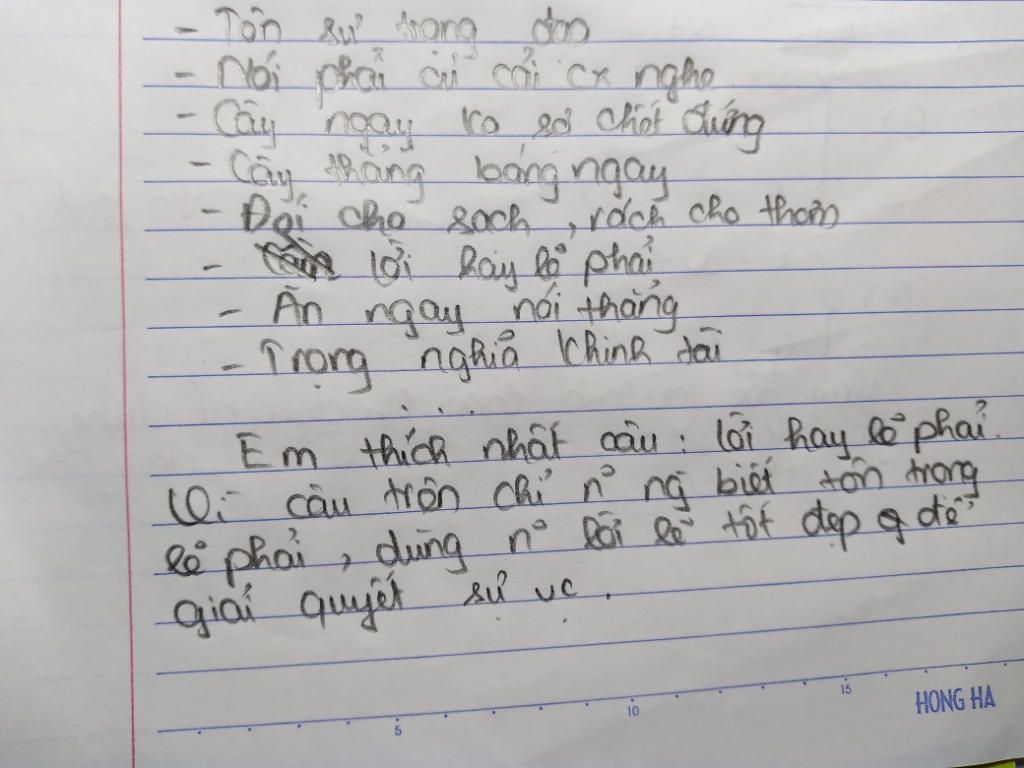 - Tôn sư trọng đạo
- Nói phải củ cải cx nghe
- Cây ngay ko sợ chết đứng
- Cây thẳng bóng ngay
- Đói cho sạch, rách cho thơm
- lời hay lẽ phải
- Ăn ngay nói thẳng
- Trọng nghĩa khinh tài
...
Em thích nhất câu: lời hay lẽ phải.
Vì câu trên chỉ n~ ng biết tôn trọng
lẽ phải, dùng n~ lời lẽ tốt đẹp để
giải quyết sự vc.
5
10
15
HONG HA